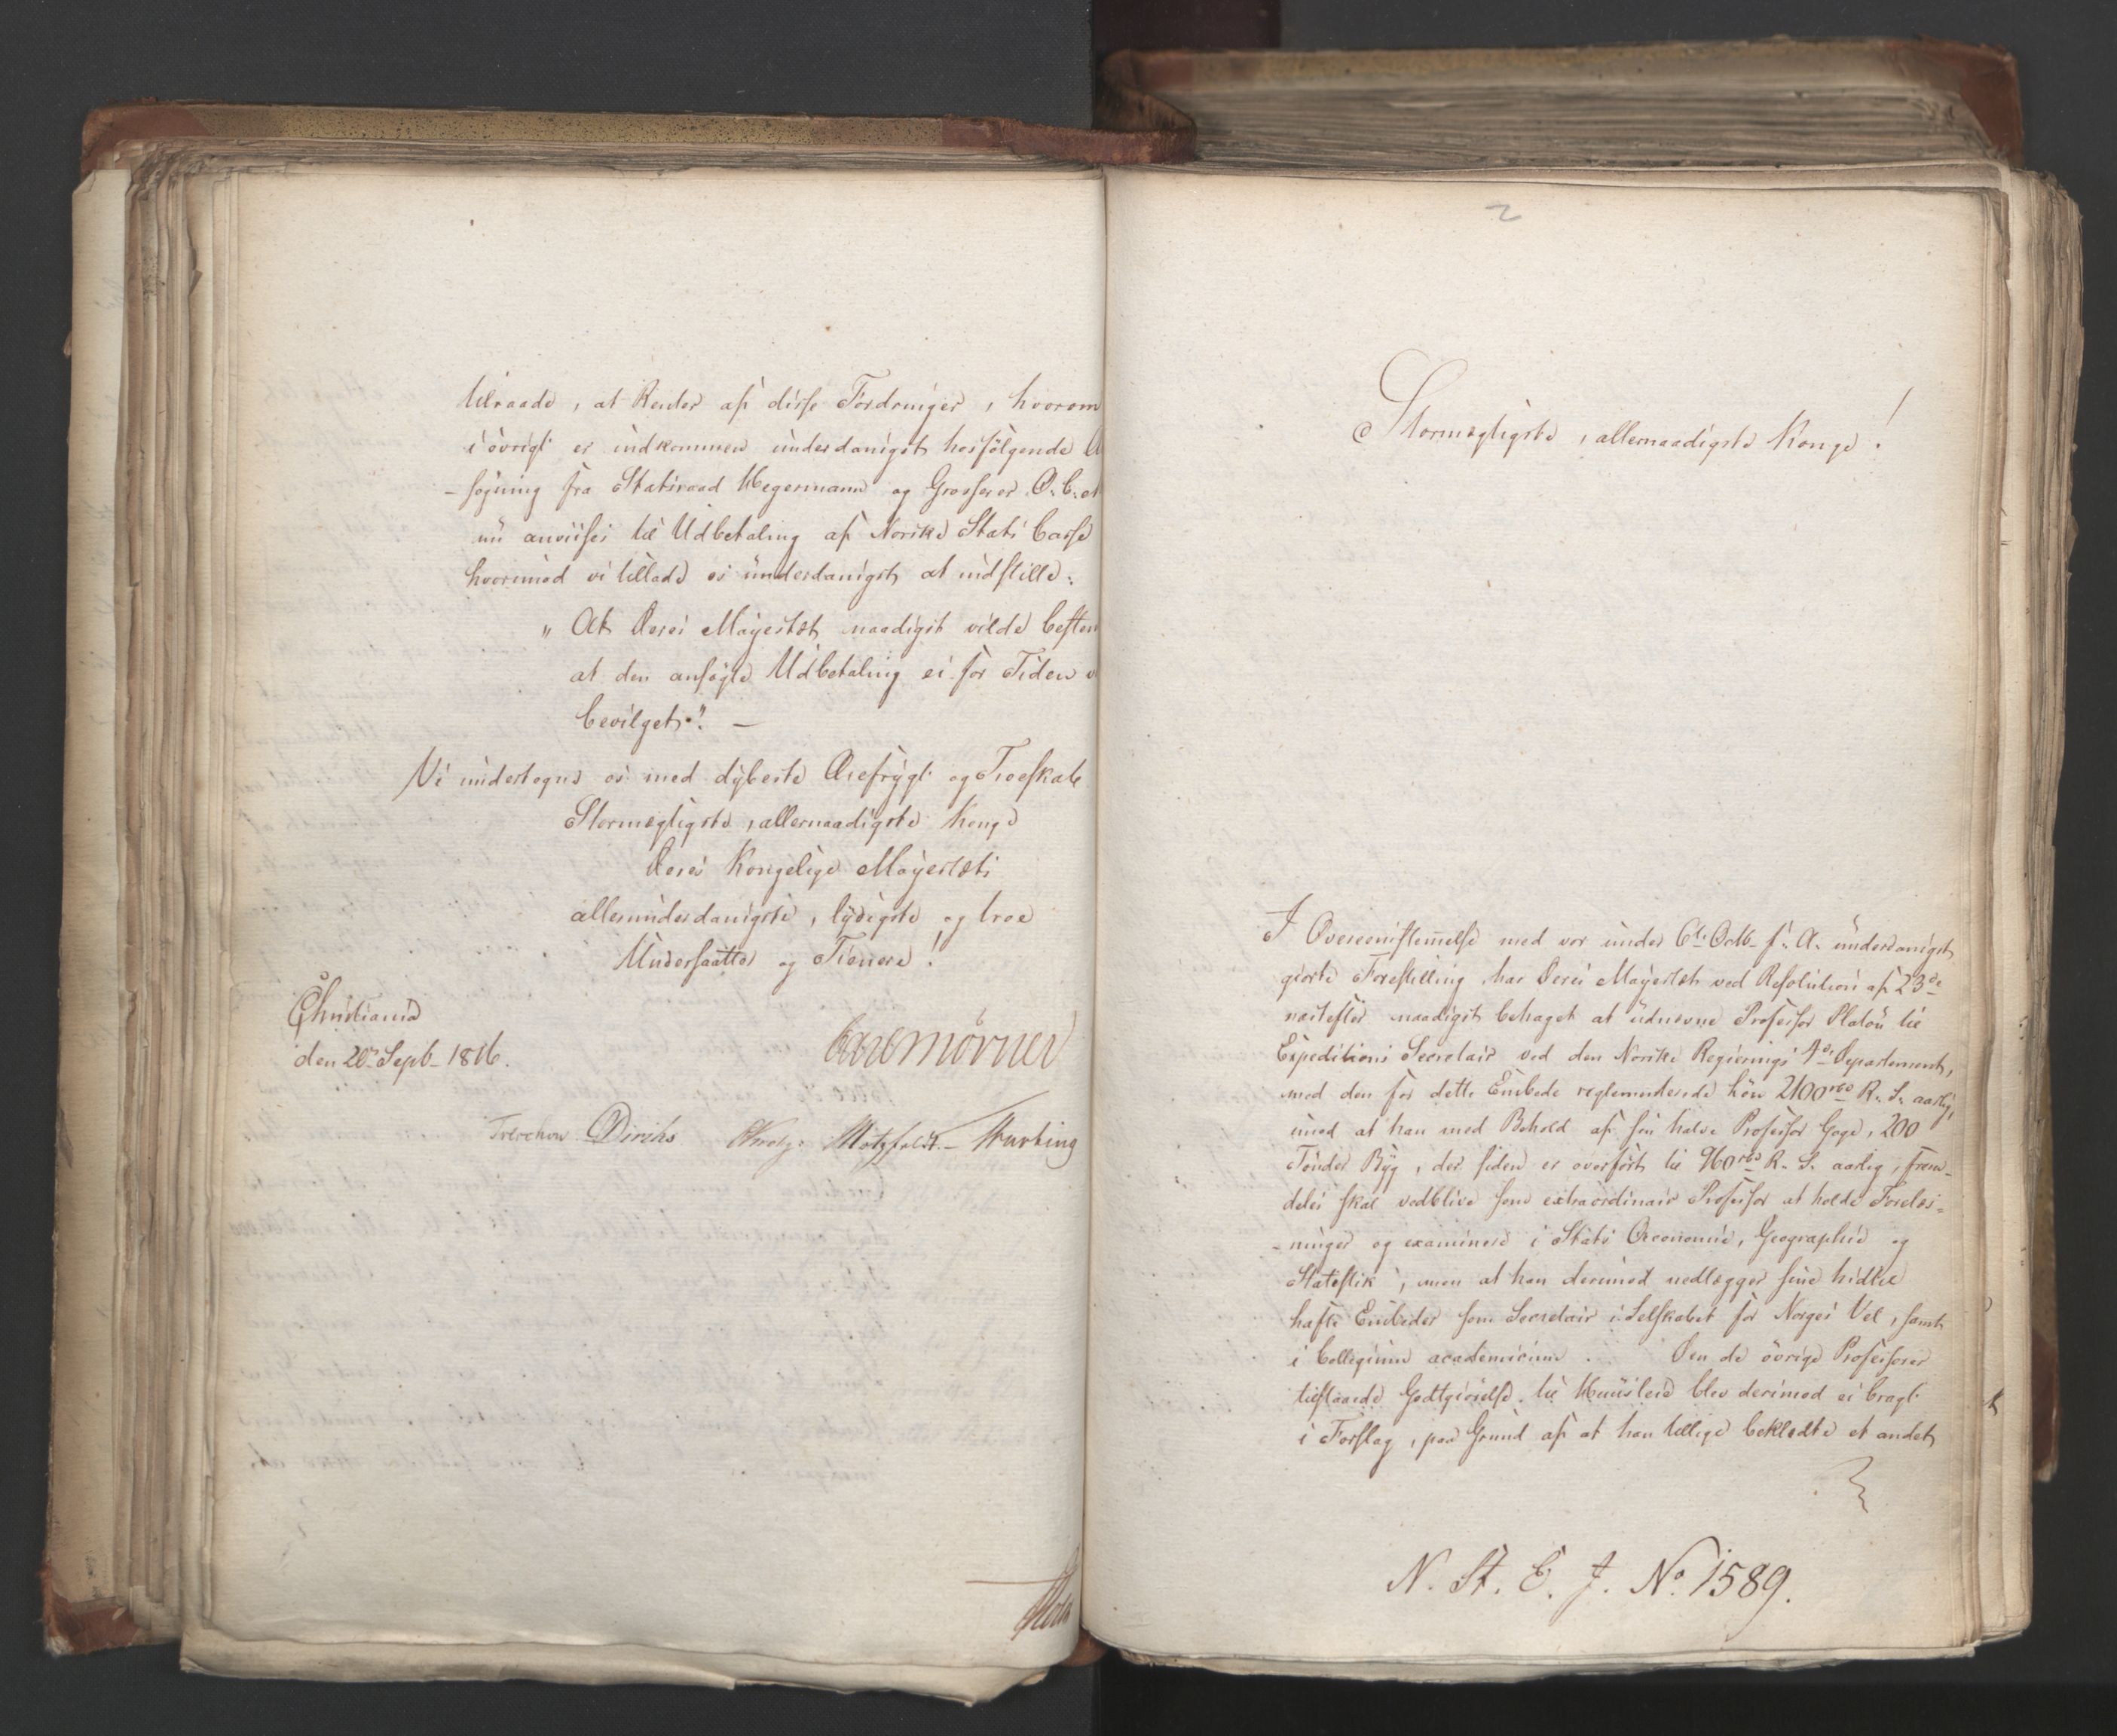 tilraade, at Renter af disse Fordringer, hvorom
iøvrigt er indkommen underdanigst hosfølgende
-søgning fra Statsraad Hegermann og Grosserer O. C.
nu anvises til Udbetaling af Norske Stats Casse
hvorimod vi tillade os underdanigst at indstille:
"At Deres Mayestæt naadigst vilde
at den ansøgte Udbetaling ei for Tiden
bevilget". —
Vi undertegne os med dybeste Ærefrygt og Troeskab
Stormægtigste, allernaadigste Konge
Deres Kongelige Mayestæts
allerunderdanigste, lydigste og troe
Undersaatter og Tienere!
Christiania
den 20de Septb. 1816.
Carl Mörner
Treschow Diriks Krohg. Motzfeldt. Hurbing
2
Stormægtigste, allernaadigste Konge!
I Overeensstemmelse med vor under 6te Octb. f. A. underdanigst
giorte Forestilling har Deres Mayestæt ved Resolution af 23de
næstefter naadigst behaget at udnævne Professor Platou til
Expeditions Secretair ved den Norske Regierings 4de Departement,
mod den for dette Embede reglementerede Løn 2100 rbd R. S. aarlig,
imod at han med Behold af sin halve Professor Gage, 200
Tønder Byg, der siden er overført til 960 rbd R. S. aarlig, frem-
deles skal vedblive som extraordinair Professor at holde Forelæs-
-ninger og examinere i Stats Oeconomie, Geographie og
Statistik, men at han derimod nedlægger sine hidtil
hafte Embeder som Secretair i Selskabet for Norges Vel, samt
i Collegium academicum. Den de øvrige Professorer
tilstaaede Godtgiørelse til Huusleie blev derimod ei bragt
i Forslag, paa Grund af at han tillige beklædte et andet
N. St. E. J. No. 1589.